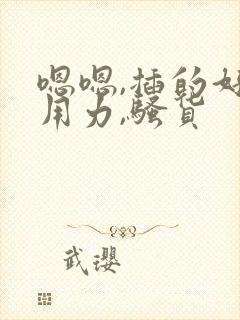 嗯嗯,插的好
用力,骚货
武璎